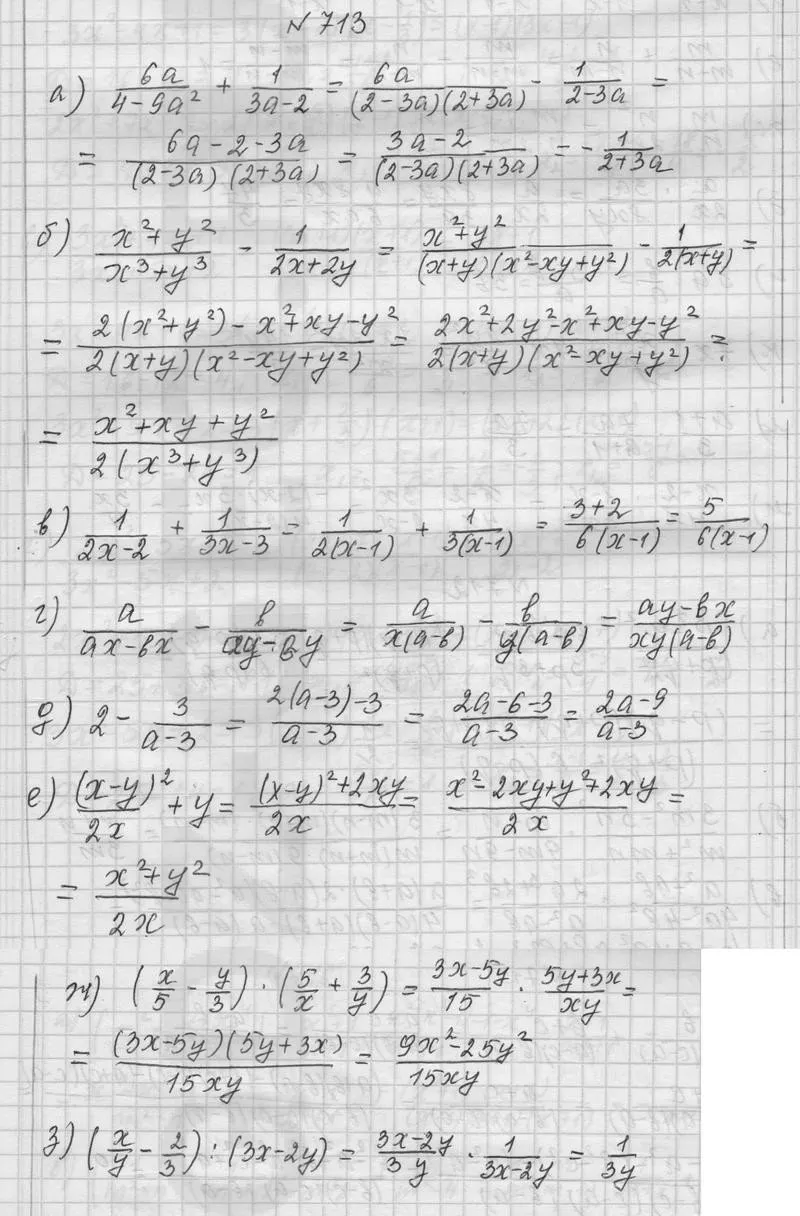 № 713
а) 6a/(4-9a²) + 1/(3a-2) = 6a/((2-3a)(2+3a)) - 1/(2-3a) =
= (6a-2-3a)/((2-3a)(2+3a)) = (3a-2)/((2-3a)(2+3a)) = - 1/(2+3a)
б) (x²+y²)/(x³+y³) - 1/(2x+2y) = (x²+y²)/((x+y)(x²-xy+y²)) - 1/(2(x+y)) =
= (2(x²+y²)-x²+xy-y²)/(2(x+y)(x²-xy+y²)) = (2x²+2y²-x²+xy-y²)/(2(x+y)(x²-xy+y²)) =
= (x²+xy+y²)/(2(x³+y³))
в) 1/(2x-2) + 1/(3x-3) = 1/(2(x-1)) + 1/(3(x-1)) = (3+2)/(6(x-1)) = 5/(6(x-1))
г) a/(ax-bx) - b/(ay-by) = a/(x(a-b)) - b/(y(a-b)) = (ay-bx)/(xy(a-b))
д) 2 - 3/(a-3) = (2(a-3)-3)/(a-3) = (2a-6-3)/(a-3) = (2a-9)/(a-3)
е) (x-y)²/2x + y = ((x-y)²+2xy)/2x = (x²-2xy+y²+2xy)/2x =
= (x²+y²)/2x
ж) (x/5 - y/3) · (5/x + 3/y) = (3x-5y)/15 · (5y+3x)/xy =
= ((3x-5y)(5y+3x))/15xy = (9x²-25y²)/15xy
з) (x/y - 2/3) : (3x-2y) = (3x-2y)/3y · 1/(3x-2y) = 1/3y